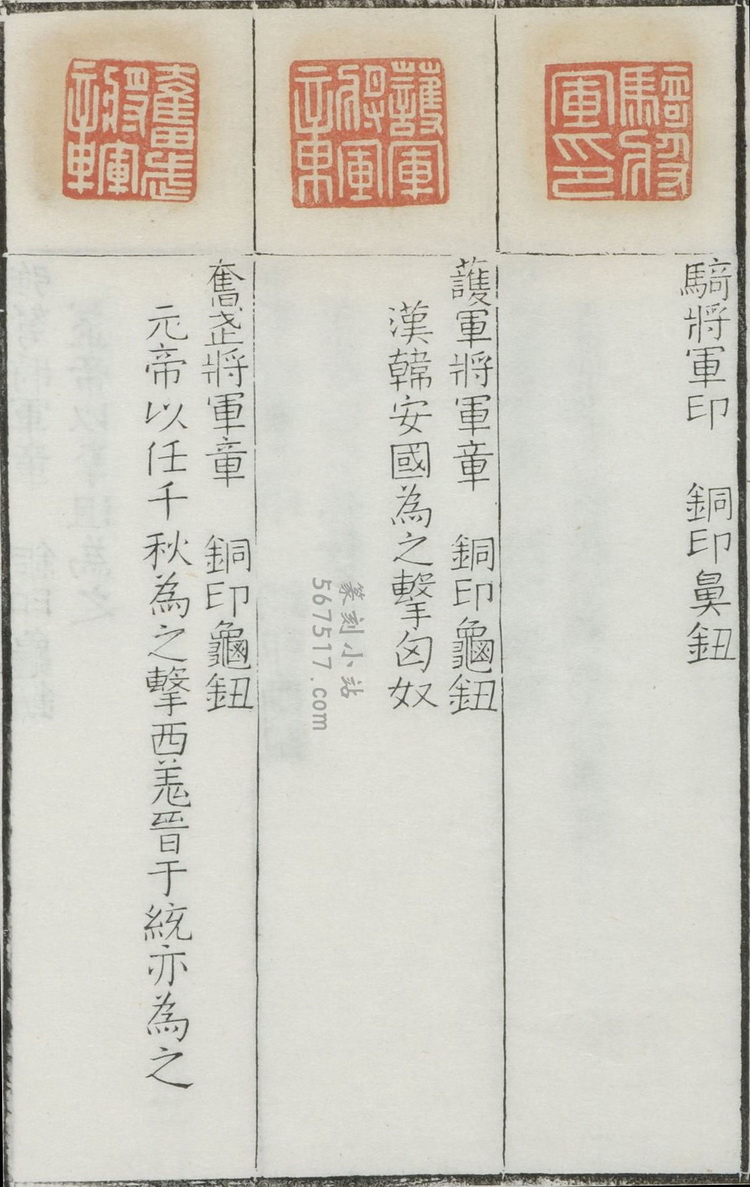 騎將
軍印
騎將軍印　銅印鼻鈕
護軍
將軍
章
護軍將軍章　銅印龜鈕
漢韓安國為之擊匈奴
奮武
將軍
章
奮武將軍章　銅印龜鈕
元帝以任千秋為之擊西羌晉于統亦為之
篆刻小站
567517.com